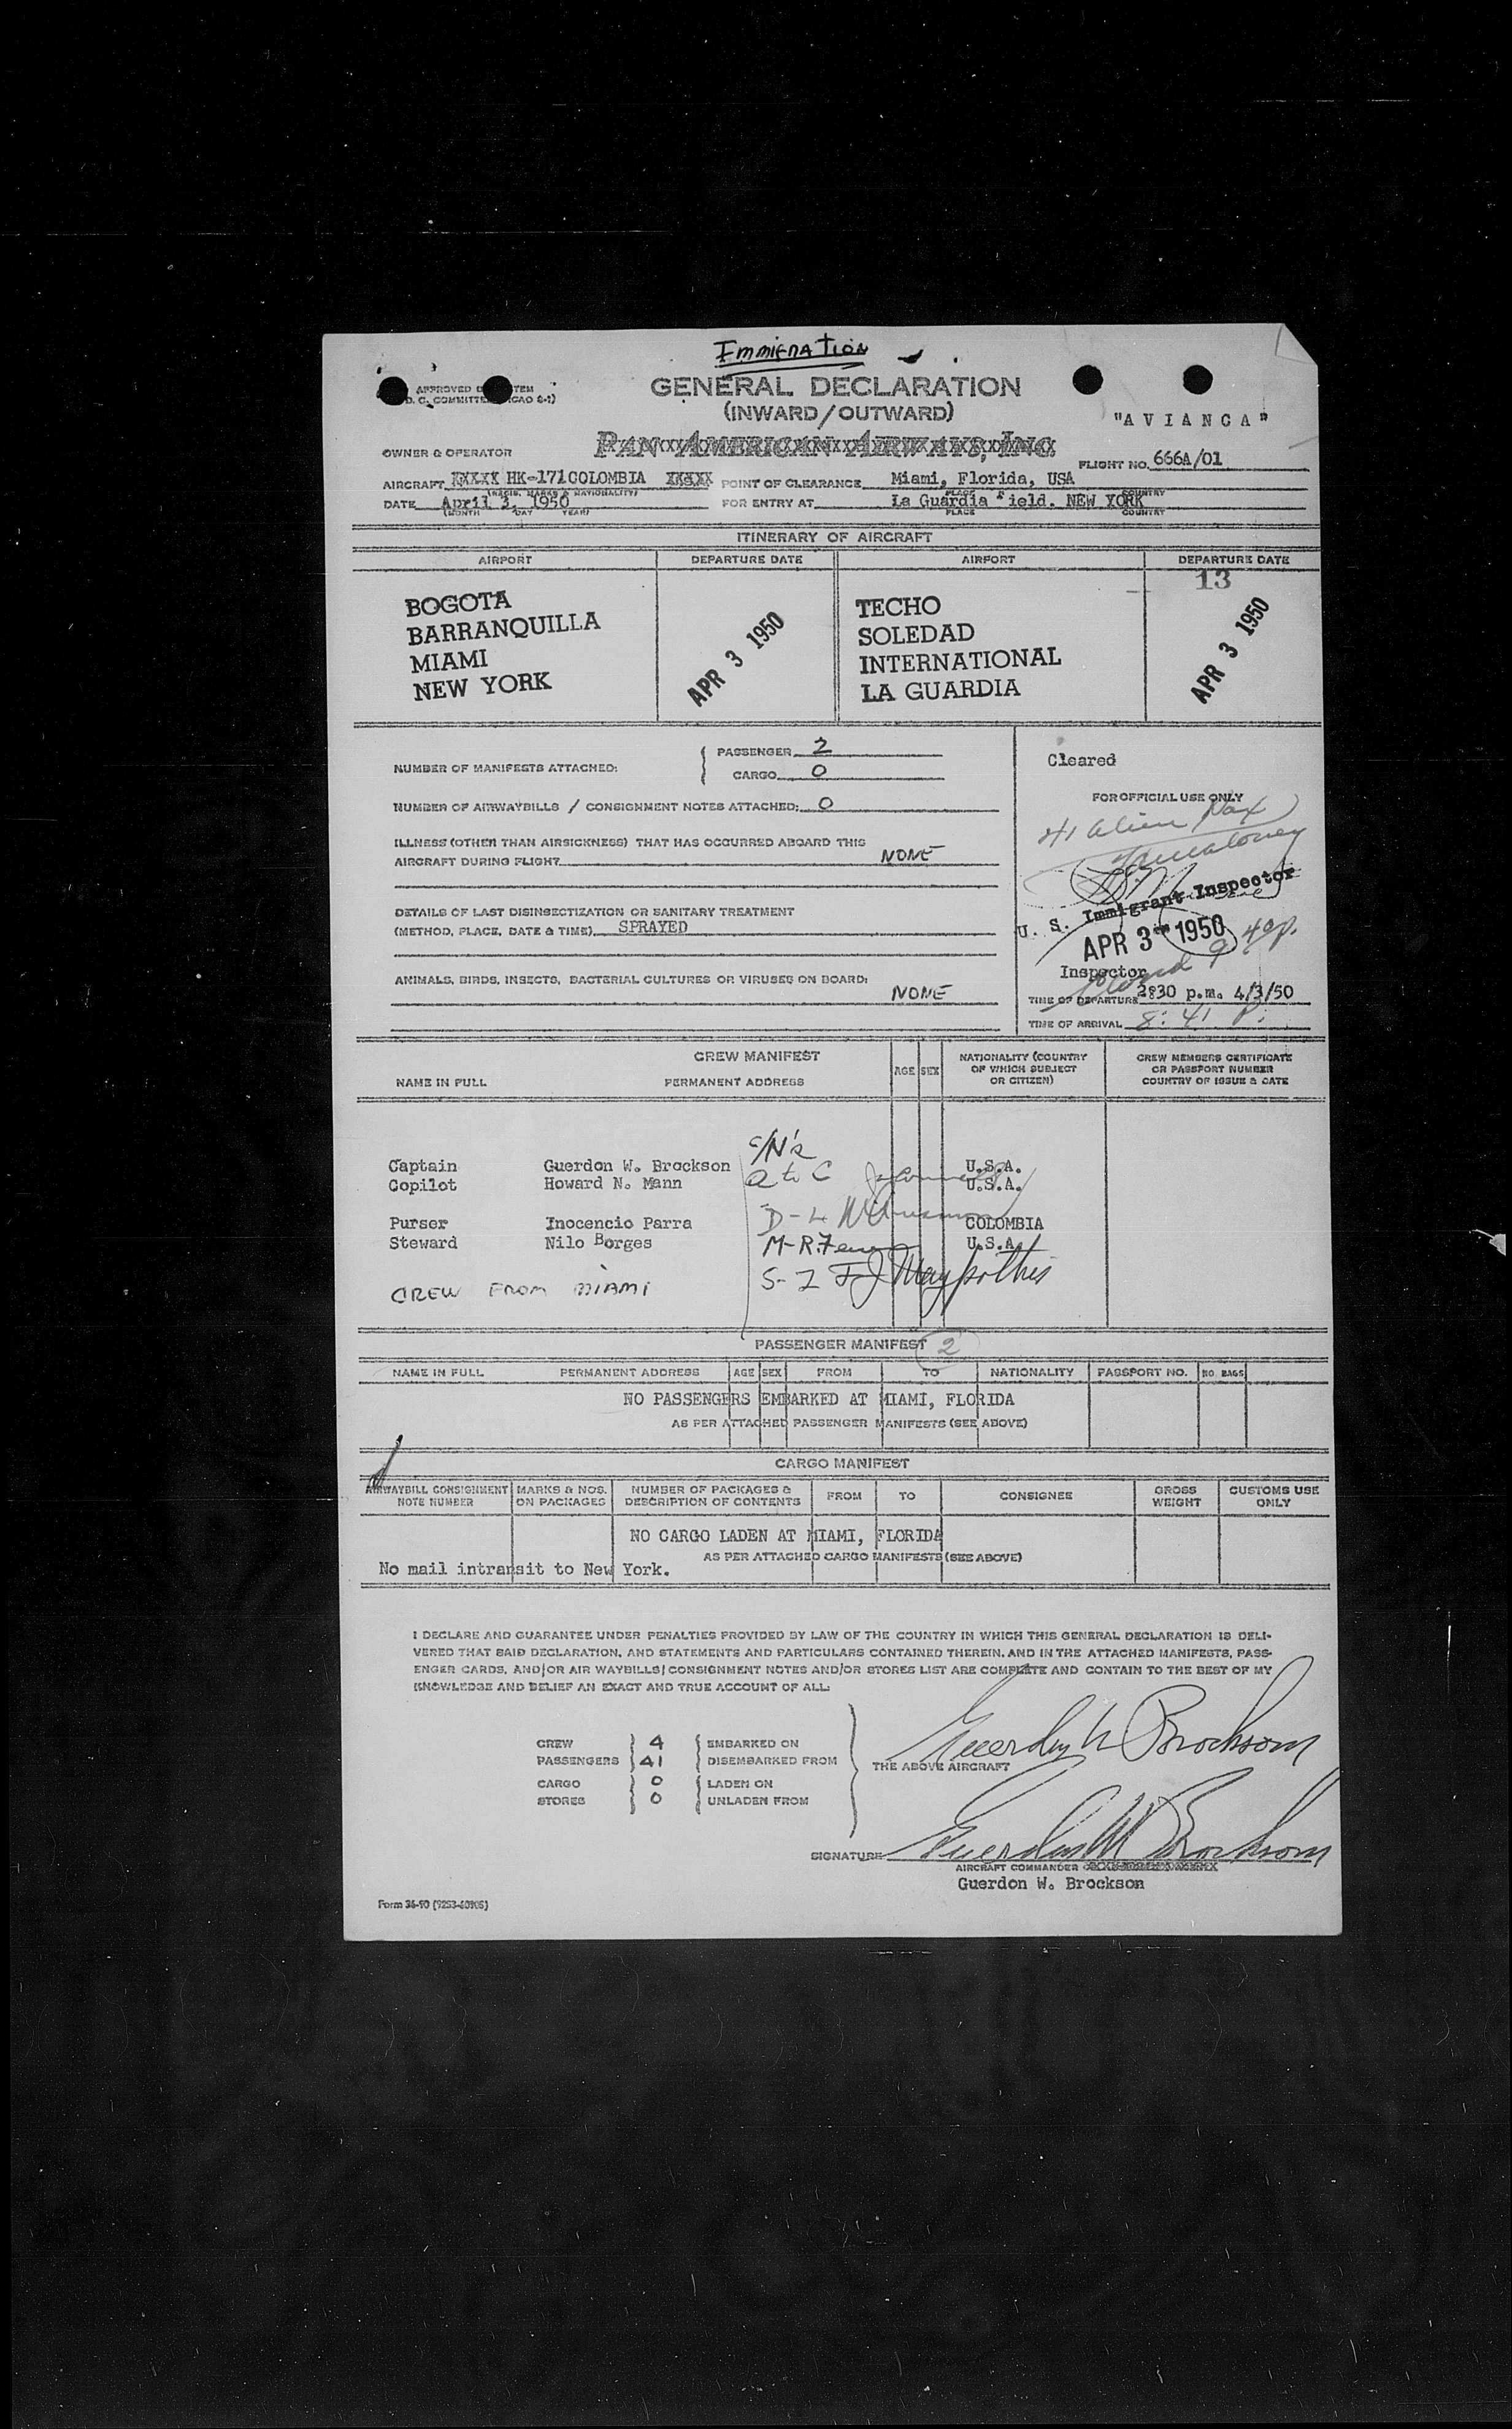 Immigration
APPROVED
D. C. COMMITTEE (ICAO 8-1)
GENERAL DECLARATION
(INWARD/OUTWARD)
"A V I A N C A"
OWNER & OPERATOR PAN AMERICAN AIRWAYS, INC
FLIGHT NO. 666A/01
AIRCRAFT XXXXX HK-171 COLOMBIA POINT OF CLEARANCE Miami, Florida, USA
(REGIS. MARKS & NATIONALITY) PLACE COUNTRY
DATE April 3, 1950 FOR ENTRY AT La Guardia Field. NEW YORK
(MONTH DAY YEAR) PLACE COUNTRY
ITINERARY OF AIRCRAFT
AIRPORT DEPARTURE DATE AIRPORT DEPARTURE DATE
13
BOGOTA TECHO
BARRANQUILLA SOLEDAD
MIAMI APR 3 1950 INTERNATIONAL APR 3 1950
NEW YORK LA GUARDIA
NUMBER OF MANIFESTS ATTACHED: { PASSENGER 2
CARGO 0
Cleared
FOR OFFICIAL USE ONLY
NUMBER OF AIRWAYBILLS / CONSIGNMENT NOTES ATTACHED: 0
41 alien Pax
ILLNESS (OTHER THAN AIRSICKNESS) THAT HAS OCCURRED ABOARD THIS
AIRCRAFT DURING FLIGHT NONE
U. S. Immigrant Inspector
DETAILS OF LAST DISINSECTIZATION OR SANITARY TREATMENT
(METHOD, PLACE, DATE & TIME) SPRAYED
APR 3 1950
9 40p.
Inspector
ANIMALS, BIRDS, INSECTS, BACTERIAL CULTURES OR VIRUSES ON BOARD:
NONE
TIME OF DEPARTURE 2:30 p.m. 4/3/50
TIME OF ARRIVAL 8:41 P.
CREW MANIFEST
NAME IN FULL PERMANENT ADDRESS AGE SEX NATIONALITY (COUNTRY OF WHICH SUBJECT OR CITIZEN) CREW MEMBERS CERTIFICATE OR PASSPORT NUMBER COUNTRY OF ISSUE & DATE
Captain Guerdon W. Brockson U.S.A.
Copilot Howard N. Mann A to C U.S.A.
Purser Inocencio Parra D-L COLOMBIA
Steward Nilo Borges M-R U.S.A.
CREW FROM MIAMI S-Z
PASSENGER MANIFEST 2
NAME IN FULL PERMANENT ADDRESS AGE SEX FROM TO NATIONALITY PASSPORT NO. NO. BAGS
NO PASSENGERS EMBARKED AT MIAMI, FLORIDA
AS PER ATTACHED PASSENGER MANIFESTS (SEE ABOVE)
CARGO MANIFEST
AIRWAYBILL CONSIGNMENT NOTE NUMBER MARKS & NOS. ON PACKAGES NUMBER OF PACKAGES & DESCRIPTION OF CONTENTS FROM TO CONSIGNEE GROSS WEIGHT CUSTOMS USE ONLY
NO CARGO LADEN AT MIAMI, FLORIDA
AS PER ATTACHED CARGO MANIFESTS (SEE ABOVE)
No mail intransit to New York.
I DECLARE AND GUARANTEE UNDER PENALTIES PROVIDED BY LAW OF THE COUNTRY IN WHICH THIS GENERAL DECLARATION IS DELI-
VERED THAT SAID DECLARATION, AND STATEMENTS AND PARTICULARS CONTAINED THEREIN, AND IN THE ATTACHED MANIFESTS, PASS-
ENGER CARDS, AND/OR AIR WAYBILLS/CONSIGNMENT NOTES AND/OR STORES LIST ARE COMPLETE AND CONTAIN TO THE BEST OF MY
KNOWLEDGE AND BELIEF AN EXACT AND TRUE ACCOUNT OF ALL:
CREW } 4 { EMBARKED ON
PASSENGERS } 41 { DISEMBARKED FROM
CARGO } 0 { LADEN ON
STORES } 0 { UNLADEN FROM
THE ABOVE AIRCRAFT
Guerdon W Brockson
SIGNATURE Guerdon W Brockson
AIRCRAFT COMMANDER
Guerdon W. Brockson
Form 36-90 (9253-60105)